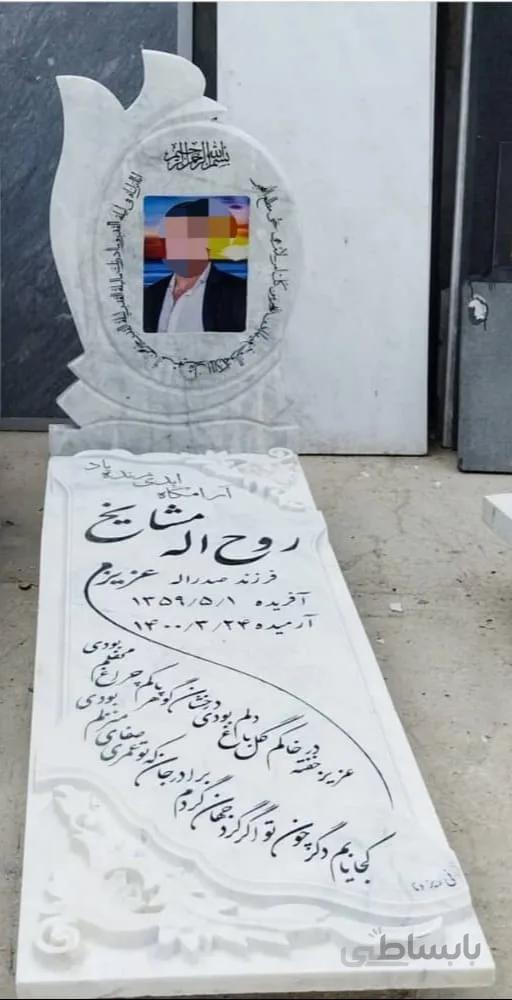 بسم الله الرحمن الرحیم
آرامگاه ابدی زنده یاد
روح اله مشایخ
فرزند صدراله عزیزم
آفریده ۱۳۵۹/۵/۱
آرمیده ۱۴۰۰/۳/۲۴
عزیز خفته در خاکم گل باغ دلم بودی
درخشان گوهر پاکم چراغ محفلم بودی
کجا یابم دگر چون تو اگر گرد جهان گردم
برادر جان که تو عمری صفای منزلم بودی
باباساطی